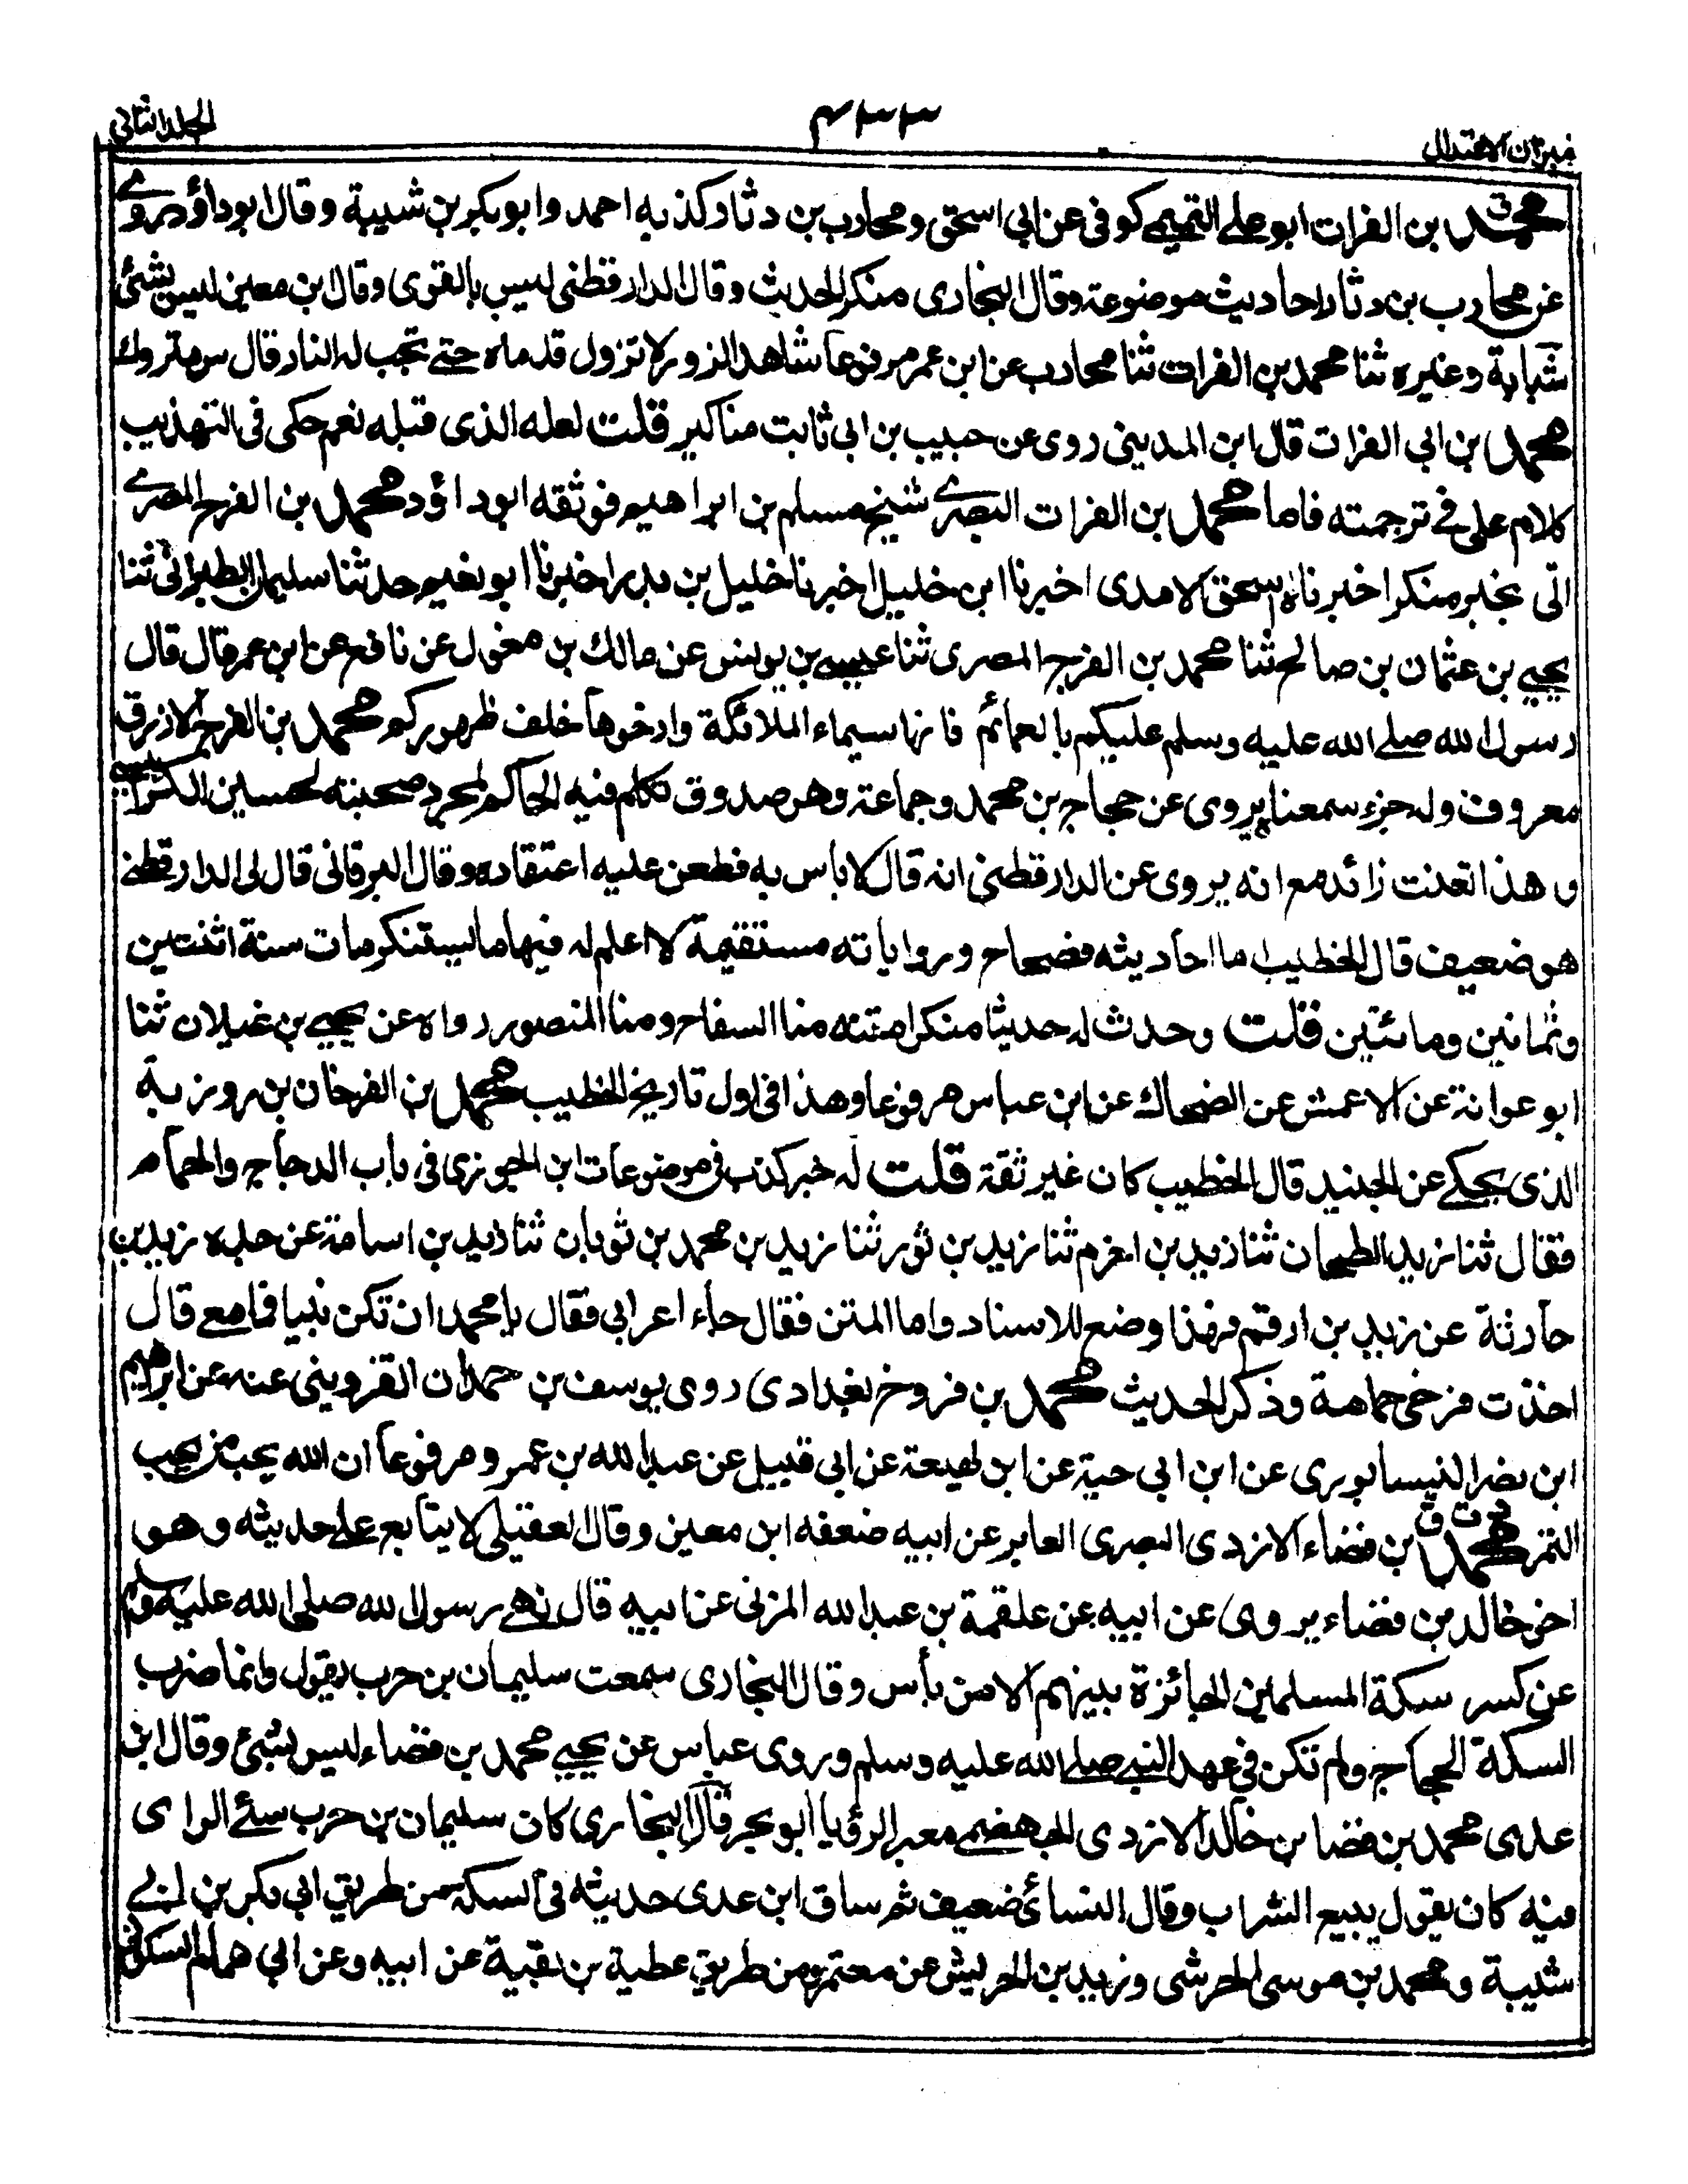 ميزان الاعتدال
٣٣٣
الجلد الثاني
محمد بن الفرات ابو علے التميمے كوفى عن ابي اسحق و محارب بن دثار كذبه احمد وابو بكر بن شيبة وقال ابو داؤد روے
عن محارب بن دثار احاديث موضوعة وقال البخارى منكر الحديث وقال الدارقطنى ليس بالقوى وقال ابن معين ليس بشئ
شبابة وغيره ثنا محمد بن الفرات ثنا محارب عن ابن عمر مرفوعا شاهد الزور لا تزول قدماه حتے تجب له النار قال س متروك
محمد بن ابي الفرات قال ابن المدينى روى عن حبيب بن ابي ثابت مناكير قلت لعله الذى قبله نعم حكى فى التهذيب
كلام على فے ترجمته فاما محمد بن الفرات البصرے شيخ مسلم بن ابراهيم فوثقه ابوداؤد محمد بن الفرج المصرے
اتى بخبر منكر اخبرناه اسحق الامدى اخبرنا ابن خليل اخبرنا خليل بن بدر اخبرنا ابو نعيم حدثنا سليمان الطبراني ثنا
يحيے بن عثمان بن صالح ثنا محمد بن الفرج المصرى ثنا عيسے بن يونس عن مالك بن مغول عن نافع عن ابن عمر قال قال
رسول الله صلے الله عليه وسلم عليكم بالعمائم فانها سيماء الملائكة وارخوها خلف ظهوركم محمد بن الفرج الازرق
معروف وله جزء سمعناه يروى عن حجاج بن محمد وجماعة وهو صدوق تكلم فيه الحاكم لمجرد صحبته لحسين الكرابيسى
و هذا تعنت زائد مع انه يروى عن الدارقطنى انه قال لا باس به فطعن عليه اعتقاده وقال البرقانى قال لى الدارقطنے
هو ضعيف قال الخطيب اما احاديثه فصحاح ورواياته مستقيمة لا اعلم له فيها ما يستنكر مات سنة اثنتين
وثمانين ومائتين قلت وحدث له حديثا منكرا متنه منا السفاح ومنا المنصور رواه عن يحيے بن غيلان ثنا
ابو عوانة عن الاعمش عن الضحاك عن ابن عباس مرفوعا وهذا فى اول تاريخ الخطيب محمد بن الفرخان بن روزبة
الذى يحكے عن الجنيد قال الخطيب كان غير ثقة قلت له خبر كذب فى موضوعات ابن الجوزى فى باب الدجاج والحمام
فقال ثنا زيد الطحان ثنا زيد بن اخزم ثنا زيد بن ثور ثنا زيد بن محمد بن ثوبان ثنا زيد بن اسامة عن جده زيد بن
حارثة عن زيد بن ارقم فهذا وضع للاسناد واما المتن فقال جاء اعرابى فقال يا محمد ان تكن نبيا فما معے قال
اخذت فرخى حمامة وذكر الحديث محمد بن فروخ بغدادى روى يوسف بن حمدان القزوينى عنه عن ابراهيم
ابن نصر النيسابورى عن ابن ابي حية عن ابن لهيعة عن ابي قبيل عن عبد الله بن عمرو مرفوعا ان الله يحب من يحب
التمر محمد بن فضاء الازدى البصرى العابر عن ابيه ضعفه ابن معين وقال العقيلى لا يتابع علے حديثه وهو
اخو خالد بن فضاء يروى عن ابيه عن علقمة بن عبد الله المزنى عن ابيه قال نهے رسول الله صلى الله عليه وسلم
عن كسر سكة المسلمين الجائزة بينهم الا من باس وقال البخارى سمعت سليمان بن حرب يقول وانما ضرب
السكة الحجاج ولم تكن فى عهد النبے صلے الله عليه وسلم وروى عباس عن يحيے محمد بن فضاء ليس بشئ وقال ابن
عدى محمد بن فضا بن خالد الازدى الجهضمے معبر الرؤيا ابو بحر قال البخارى كان سليمان بن حرب سئ الراى
فيه كان يقول يبيع الشراب وقال النسائى ضعيف ثم ساق ابن عدى حديثه فى السكة من طريق ابى بكر بن ابے
شيبة و محمد بن موسى الحرشى وزيد بن الحريش عن معتمر ومن طريق عطية بن بقية عن ابيه وعن ابي همام السكونى